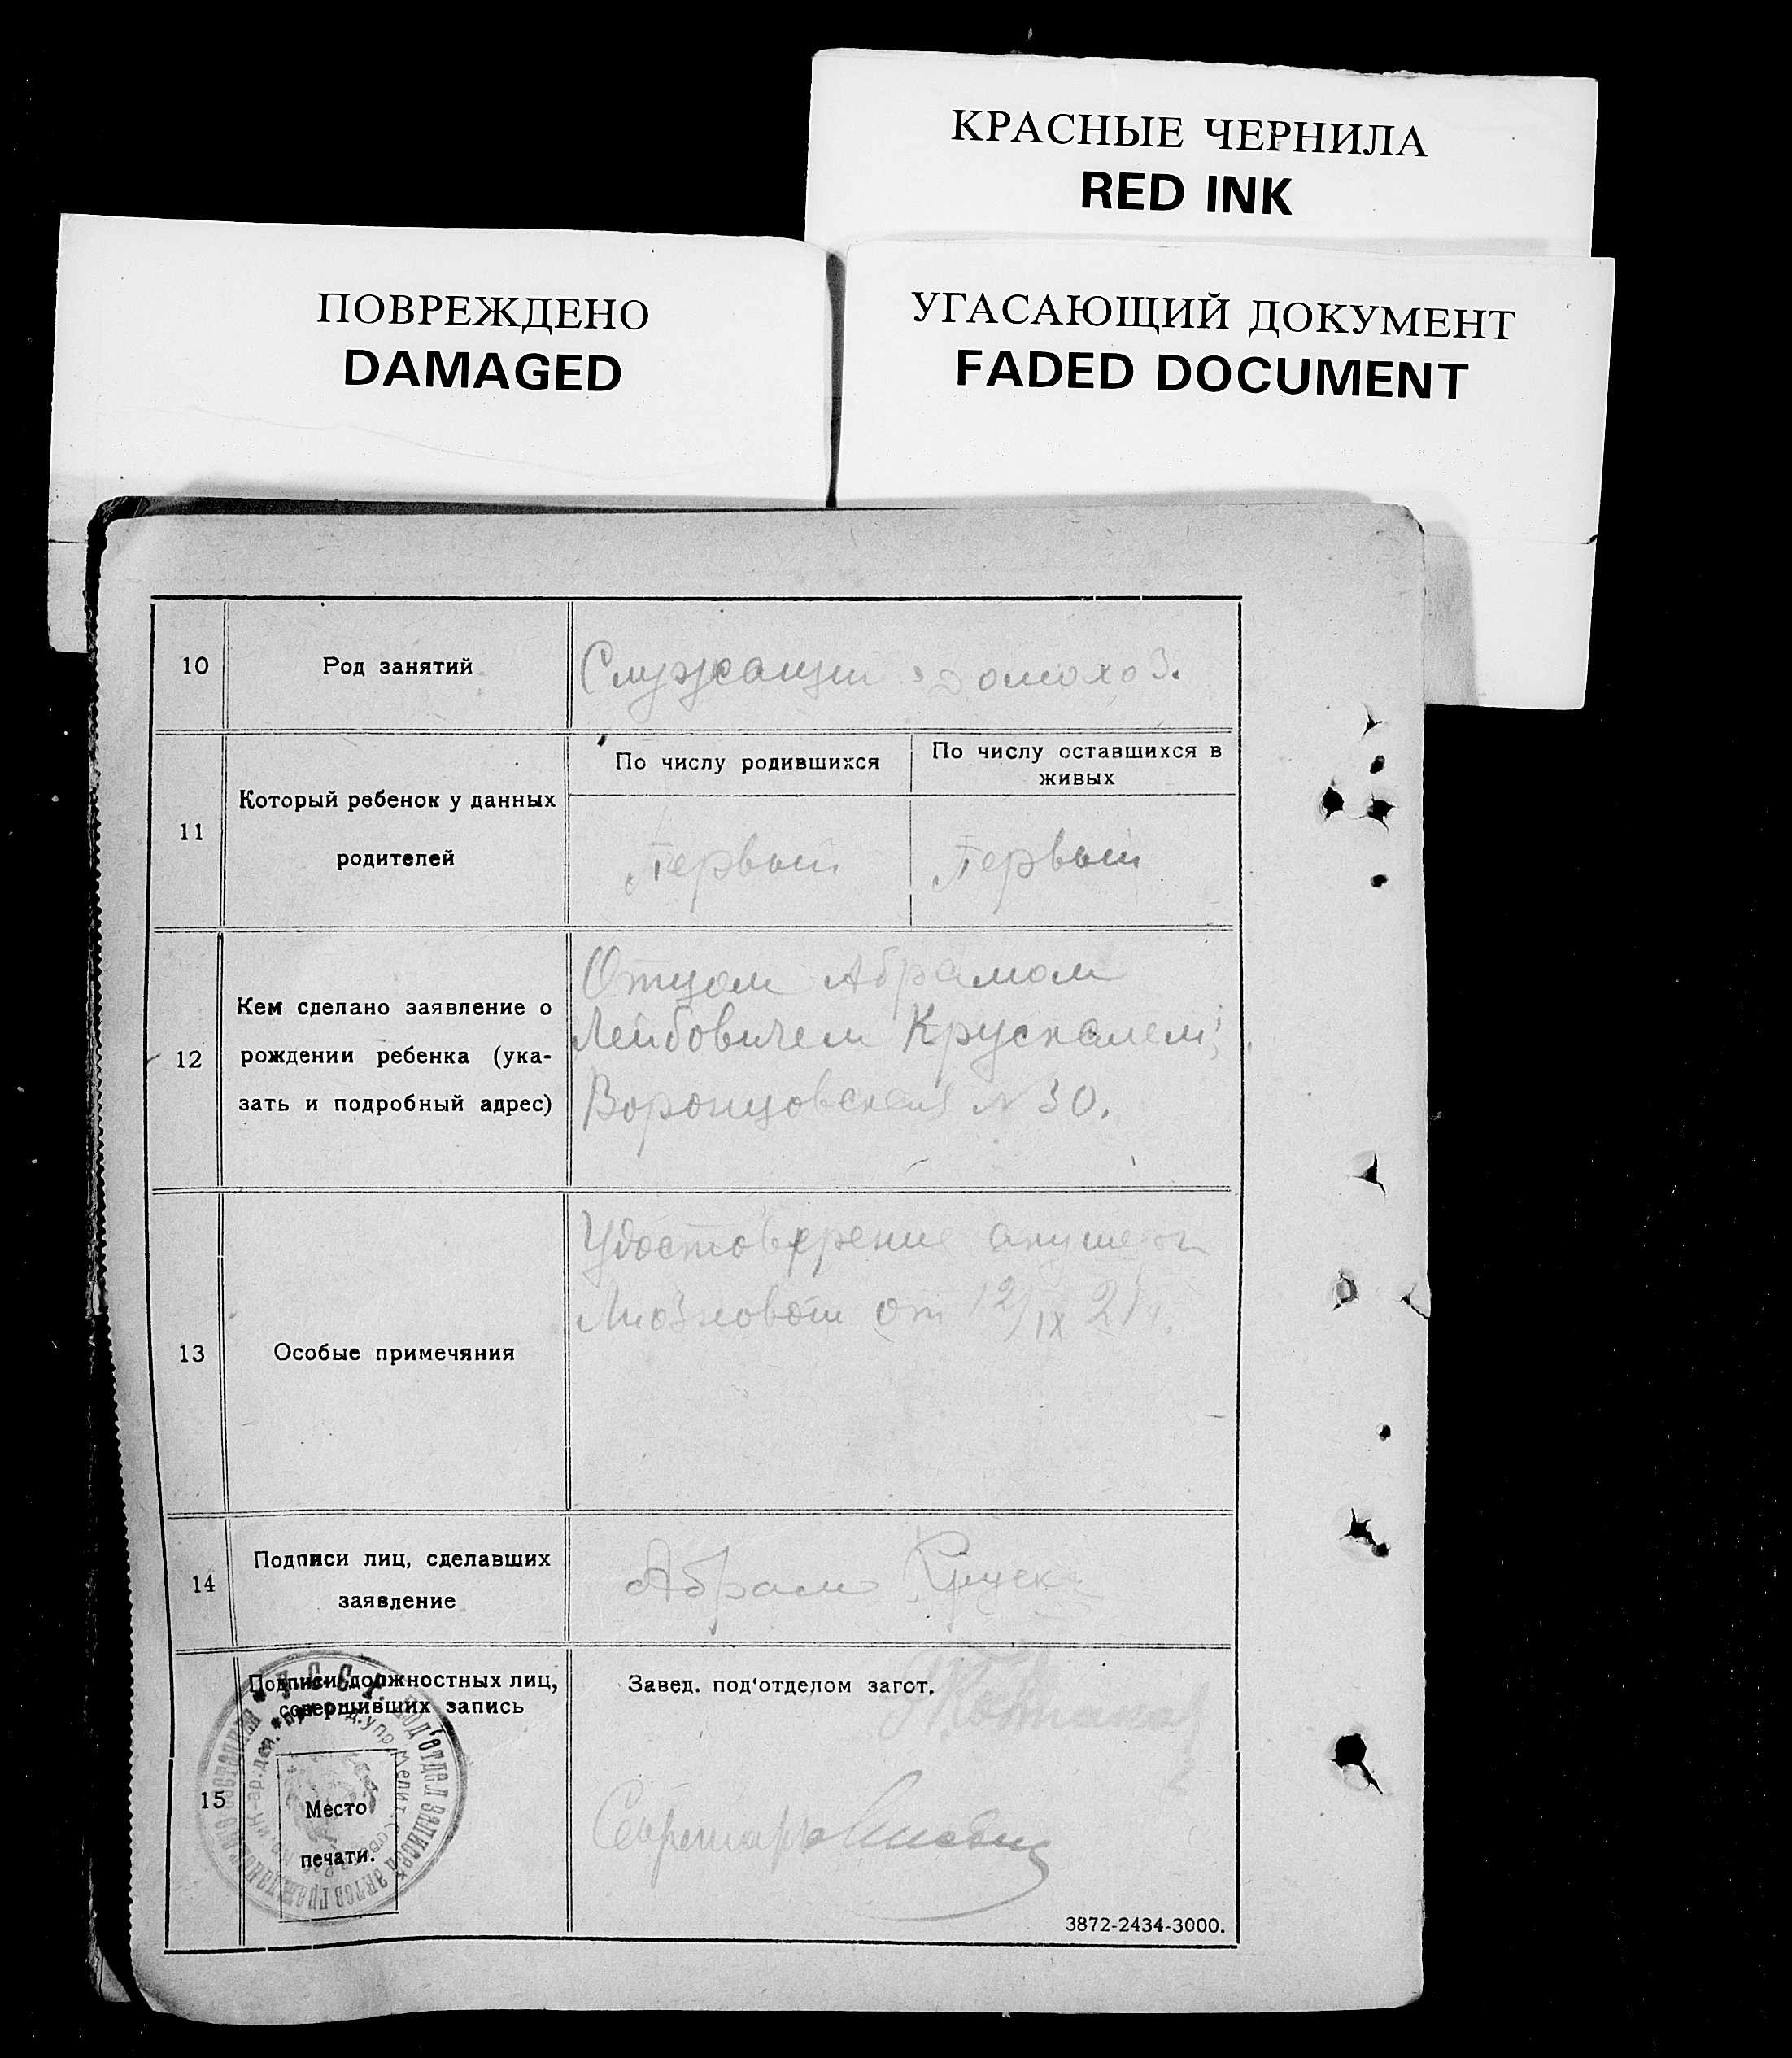 КРАСНЫЕ ЧЕРНИЛА
RED INK
ПОВРЕЖДЕНО
DAMAGED
УГАСАЮЩИЙ ДОКУМЕНТ
FADED DOCUMENT
10
Род занятий
Служащий домохоз.
11
Который ребенок у данных
родителей
По числу родившихся
По числу оставшихся в
живых
Первый
Первый
12
Кем сделано заявление о
рождении ребенка (ука-
зать и подробный адрес)
Отцом Абрамом
Лейбовичем Крускалем;
Воронцовская № 30.
13
Особые примечяния
Удостоверение акушерки
от 12/IX 21 г.
14
Подписи лиц, сделавших
заявление
Абрам
15
Подписи должностных лиц,
совершивших запись
Место
печати.
Под'отдел записей актов гражданского состояния
Завед. под'отделом загст.
Секретарь
3872-2434-3000.